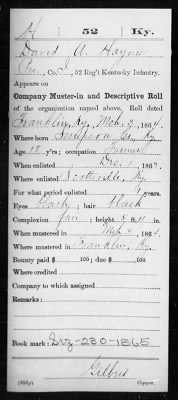 H 52 Ky.
David A. Hayne
Co. , 52 Reg't Kentucky Infantry.
Appears on
Company Muster-in and Descriptive Roll
of the organization named above. Roll dated
Franklin, Ky, Mch. 3, 1864.
Where born Simpson Co, Ky
Age 18 y'rs; occupation Farmer
When enlisted Dec. 1, 1863.
Where enlisted Scottsville, Ky.
For what period enlisted 1 years.
Eyes black; hair black
Complexion fair; height 5 ft. 11 in.
When mustered in Mch 3, 1864.
Where mustered in Franklin, Ky.
Bounty paid $ 100; due $ 100
Where credited
Company to which assigned
Remarks:
Book mark: Srz-230-1865
Gilbus
Copyist.